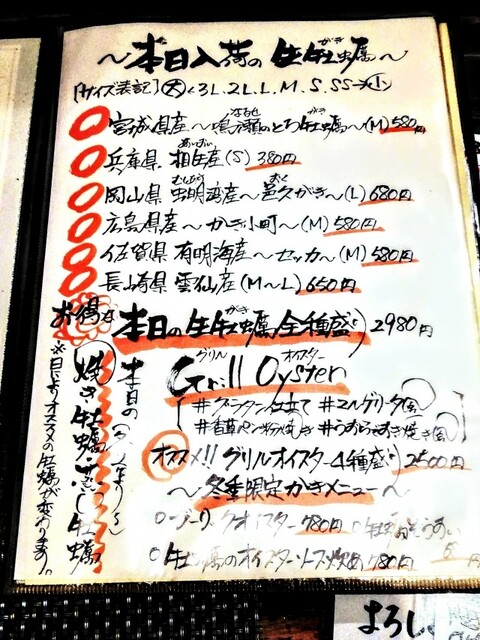 ～本日入荷の生牡蠣～
がき
[サイズ表記] 大 <3L.2L.L.M.S.SS→小
宮城県産～鳴瀬のとろ牡蠣～(M) 580円
なるせ がき
兵庫県 相生産(S) 380円
あいおい
岡山県 虫明湾産～邑久がき～(L) 680円
むしあけ おく
広島県産～かき小町～(M) 580円
佐賀県 有明海産～セッカ～(M) 580円
長崎県 雲仙産(M～L) 650円
お得な 本日の生牡蠣全種盛り 2980円
がき
グリル オイスター
Grill Oyster
#グラタン仕立て #エルグリータ風
#香草パン粉焼き
オススメ!! グリルオイスター4種盛り 2500円
～冬季限定かきメニュー～
クオイスター 780円
牡蠣のオイスターソース炒め 780円
本日の
焼き牡蠣・蒸し牡蠣
※日によりオススメの牡蠣が変わります。
よろし